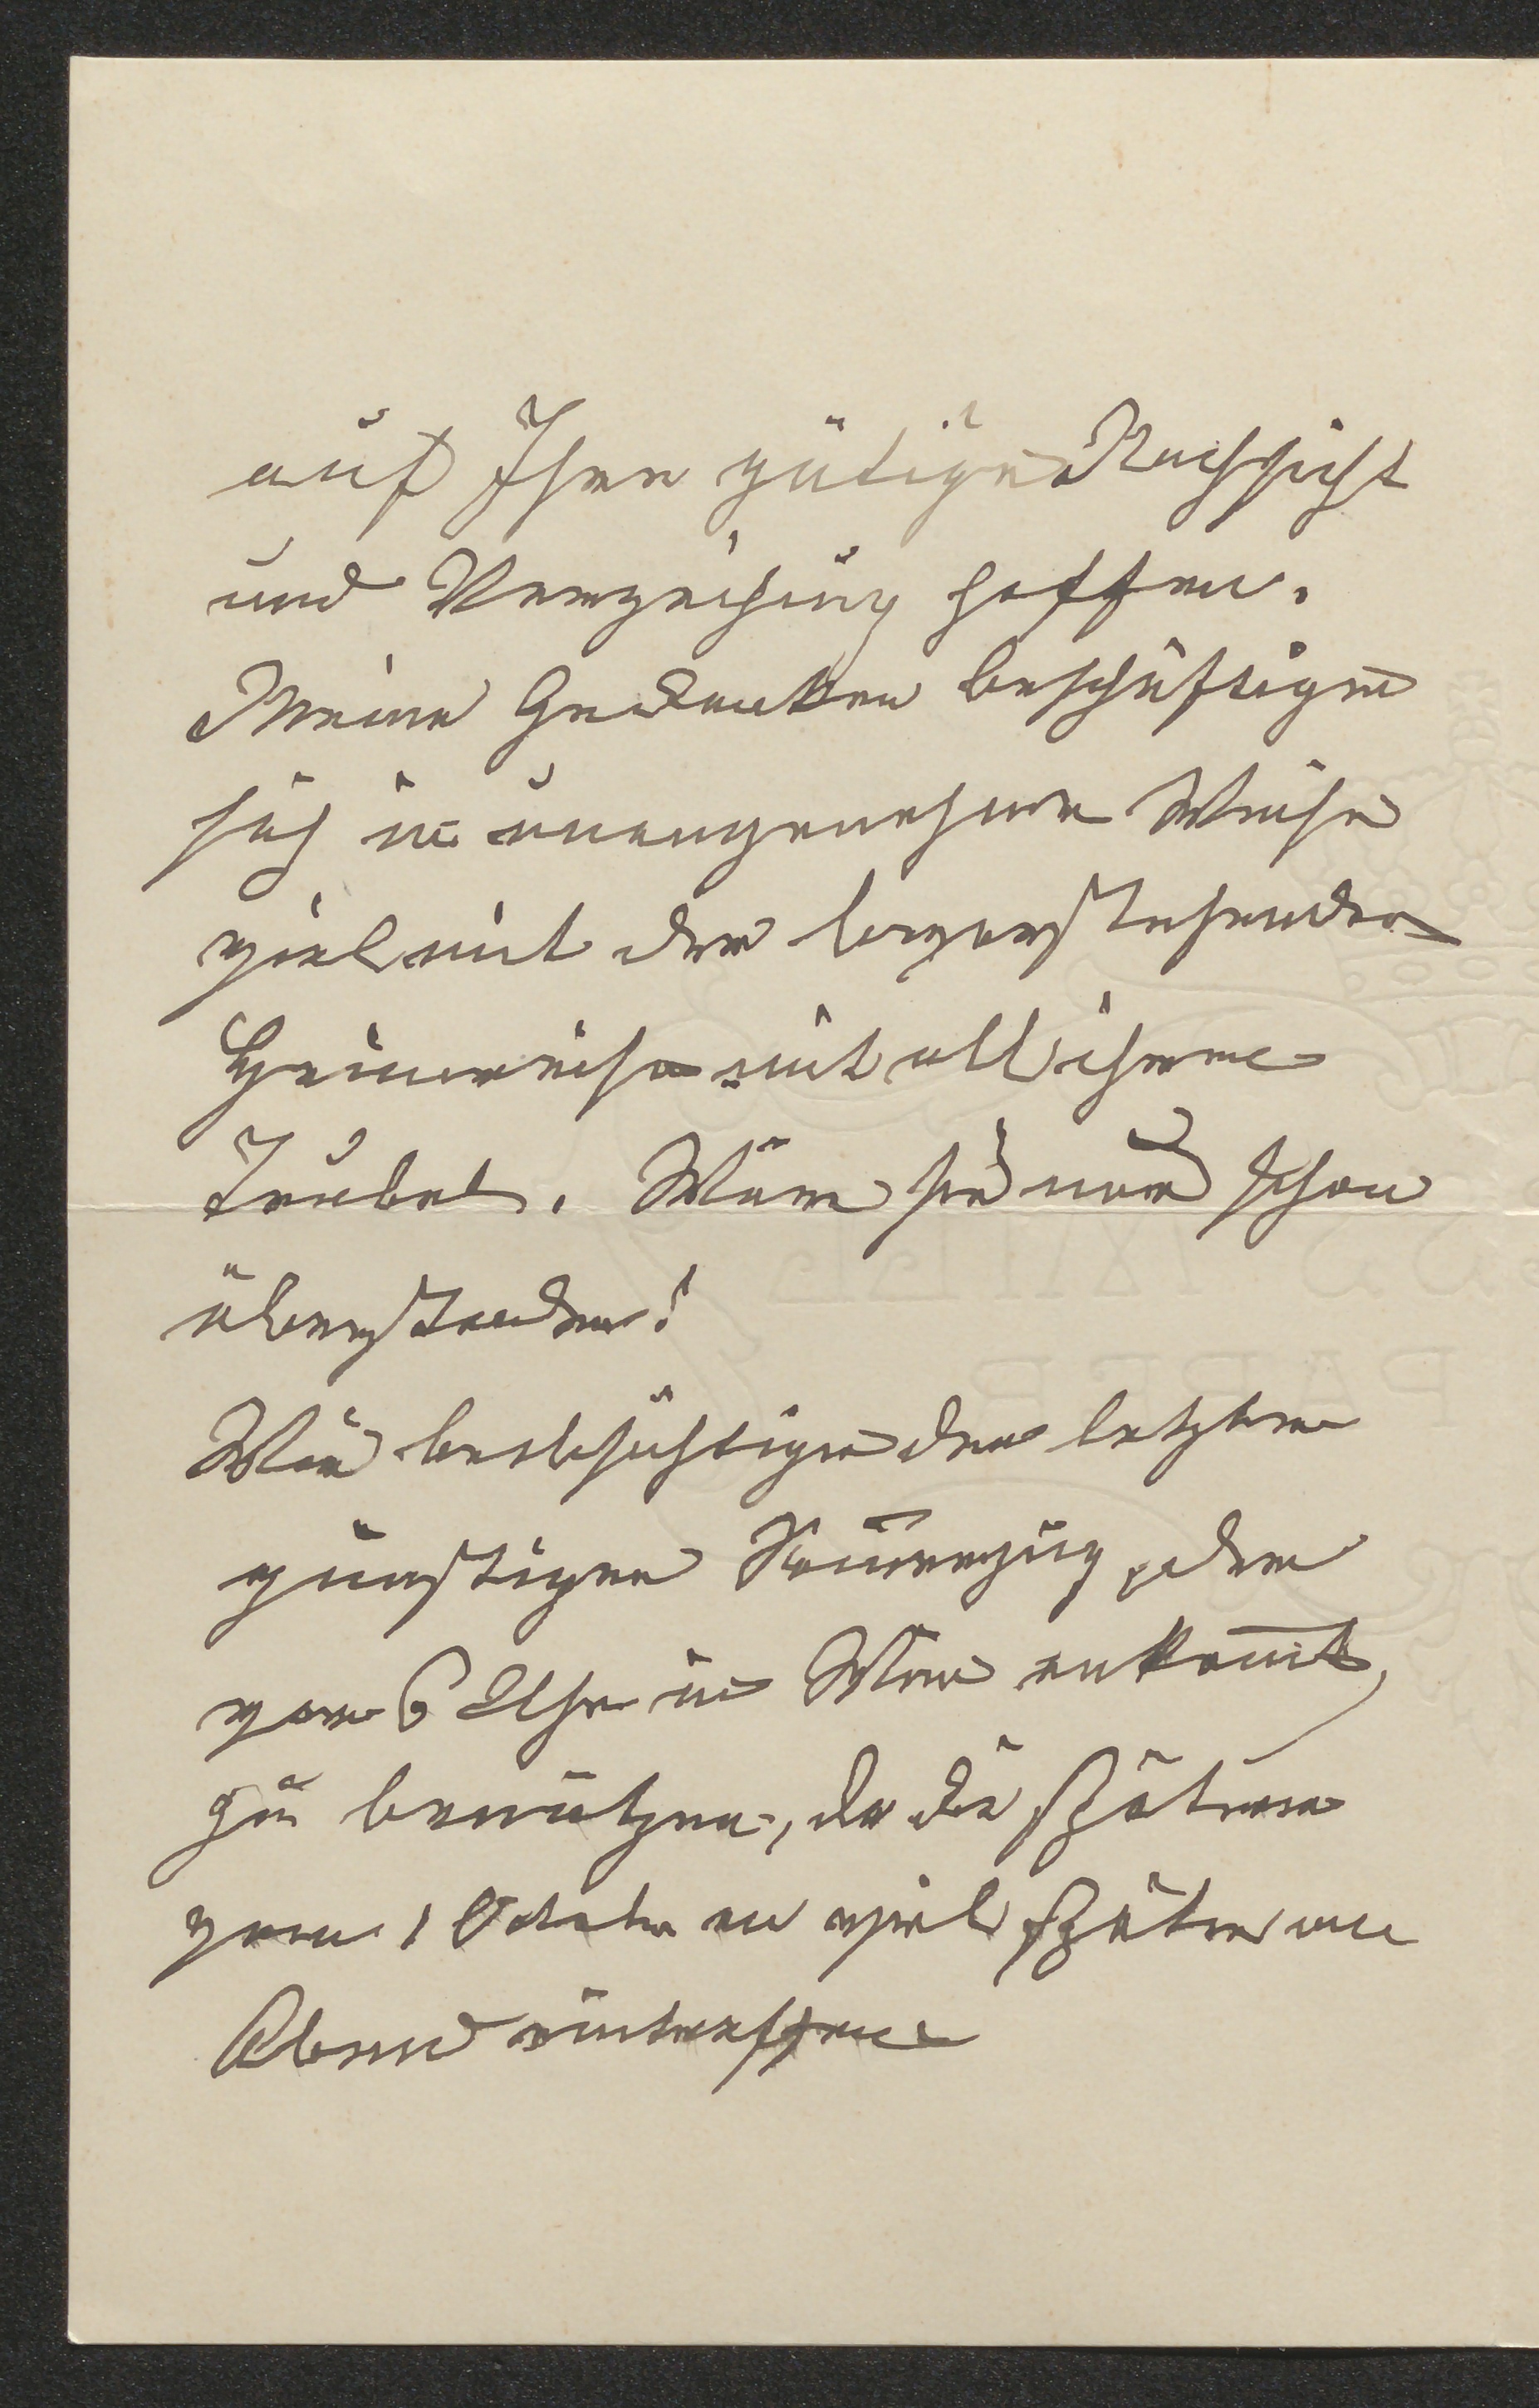 auf Ihre gütige Nachsicht
und Verzeihung hoffen.
Meine Gedanken beschäftigen
sich in unangenehmer Weise
viel mit der bevorstehenden
Heimreise mit all ihrem
Trubel. Wäre sie nur schon
überstanden!
Wir beabsichtigen den letzten
günstigen Som̅erzug, der
vor 6 Uhr in Wien ankom̅t,
zu benützen, da die späteren
vom 1 October an viel später am
Abend eintreffen